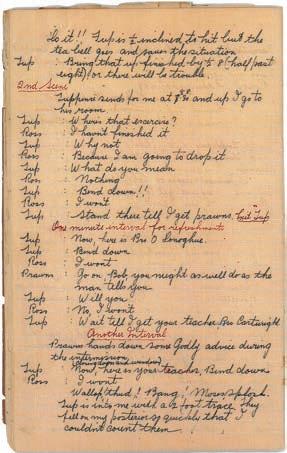 Is it!! Sup is ½ inclined to hit but the
tea bell goes and saves the situation
Sup : Bring that up finished by ½ 8 (half past
eight) or there will be trouble
2nd Scene
Supprui sends for me at 8 30 and up I go to
his room.
Sup : Where's that exercise?
Ross : I havn't finished it
Sup : Why not
Ross : Because I am going to drop it
Sup : What do you mean
Ross : Nothing
Sup : Bend down!!
Ross : I won't
Sup : Stand there till I get prawns. Exit Sup
One minute interval for refreshments
Sup : Now, here is Bro O Donoghue.
Sup : Bend down
Ross : I wont
Prawn : Go on Bob, you might as well do as the
man tells you
Sup : Will you
Ross : No, I won't
Sup : Wait till I get your teacher, Bro Cartwright
Another Interval
Prawn hands down some Godly advice during
the intermission
Sup : Now, here is your teacher, Bend down
Ross : I wont
Wallop! thud! Bang! Moresplosh.
Sup is into me with a 2 foot trace. They
fell on my posterior so quickly that I
couldn't count them